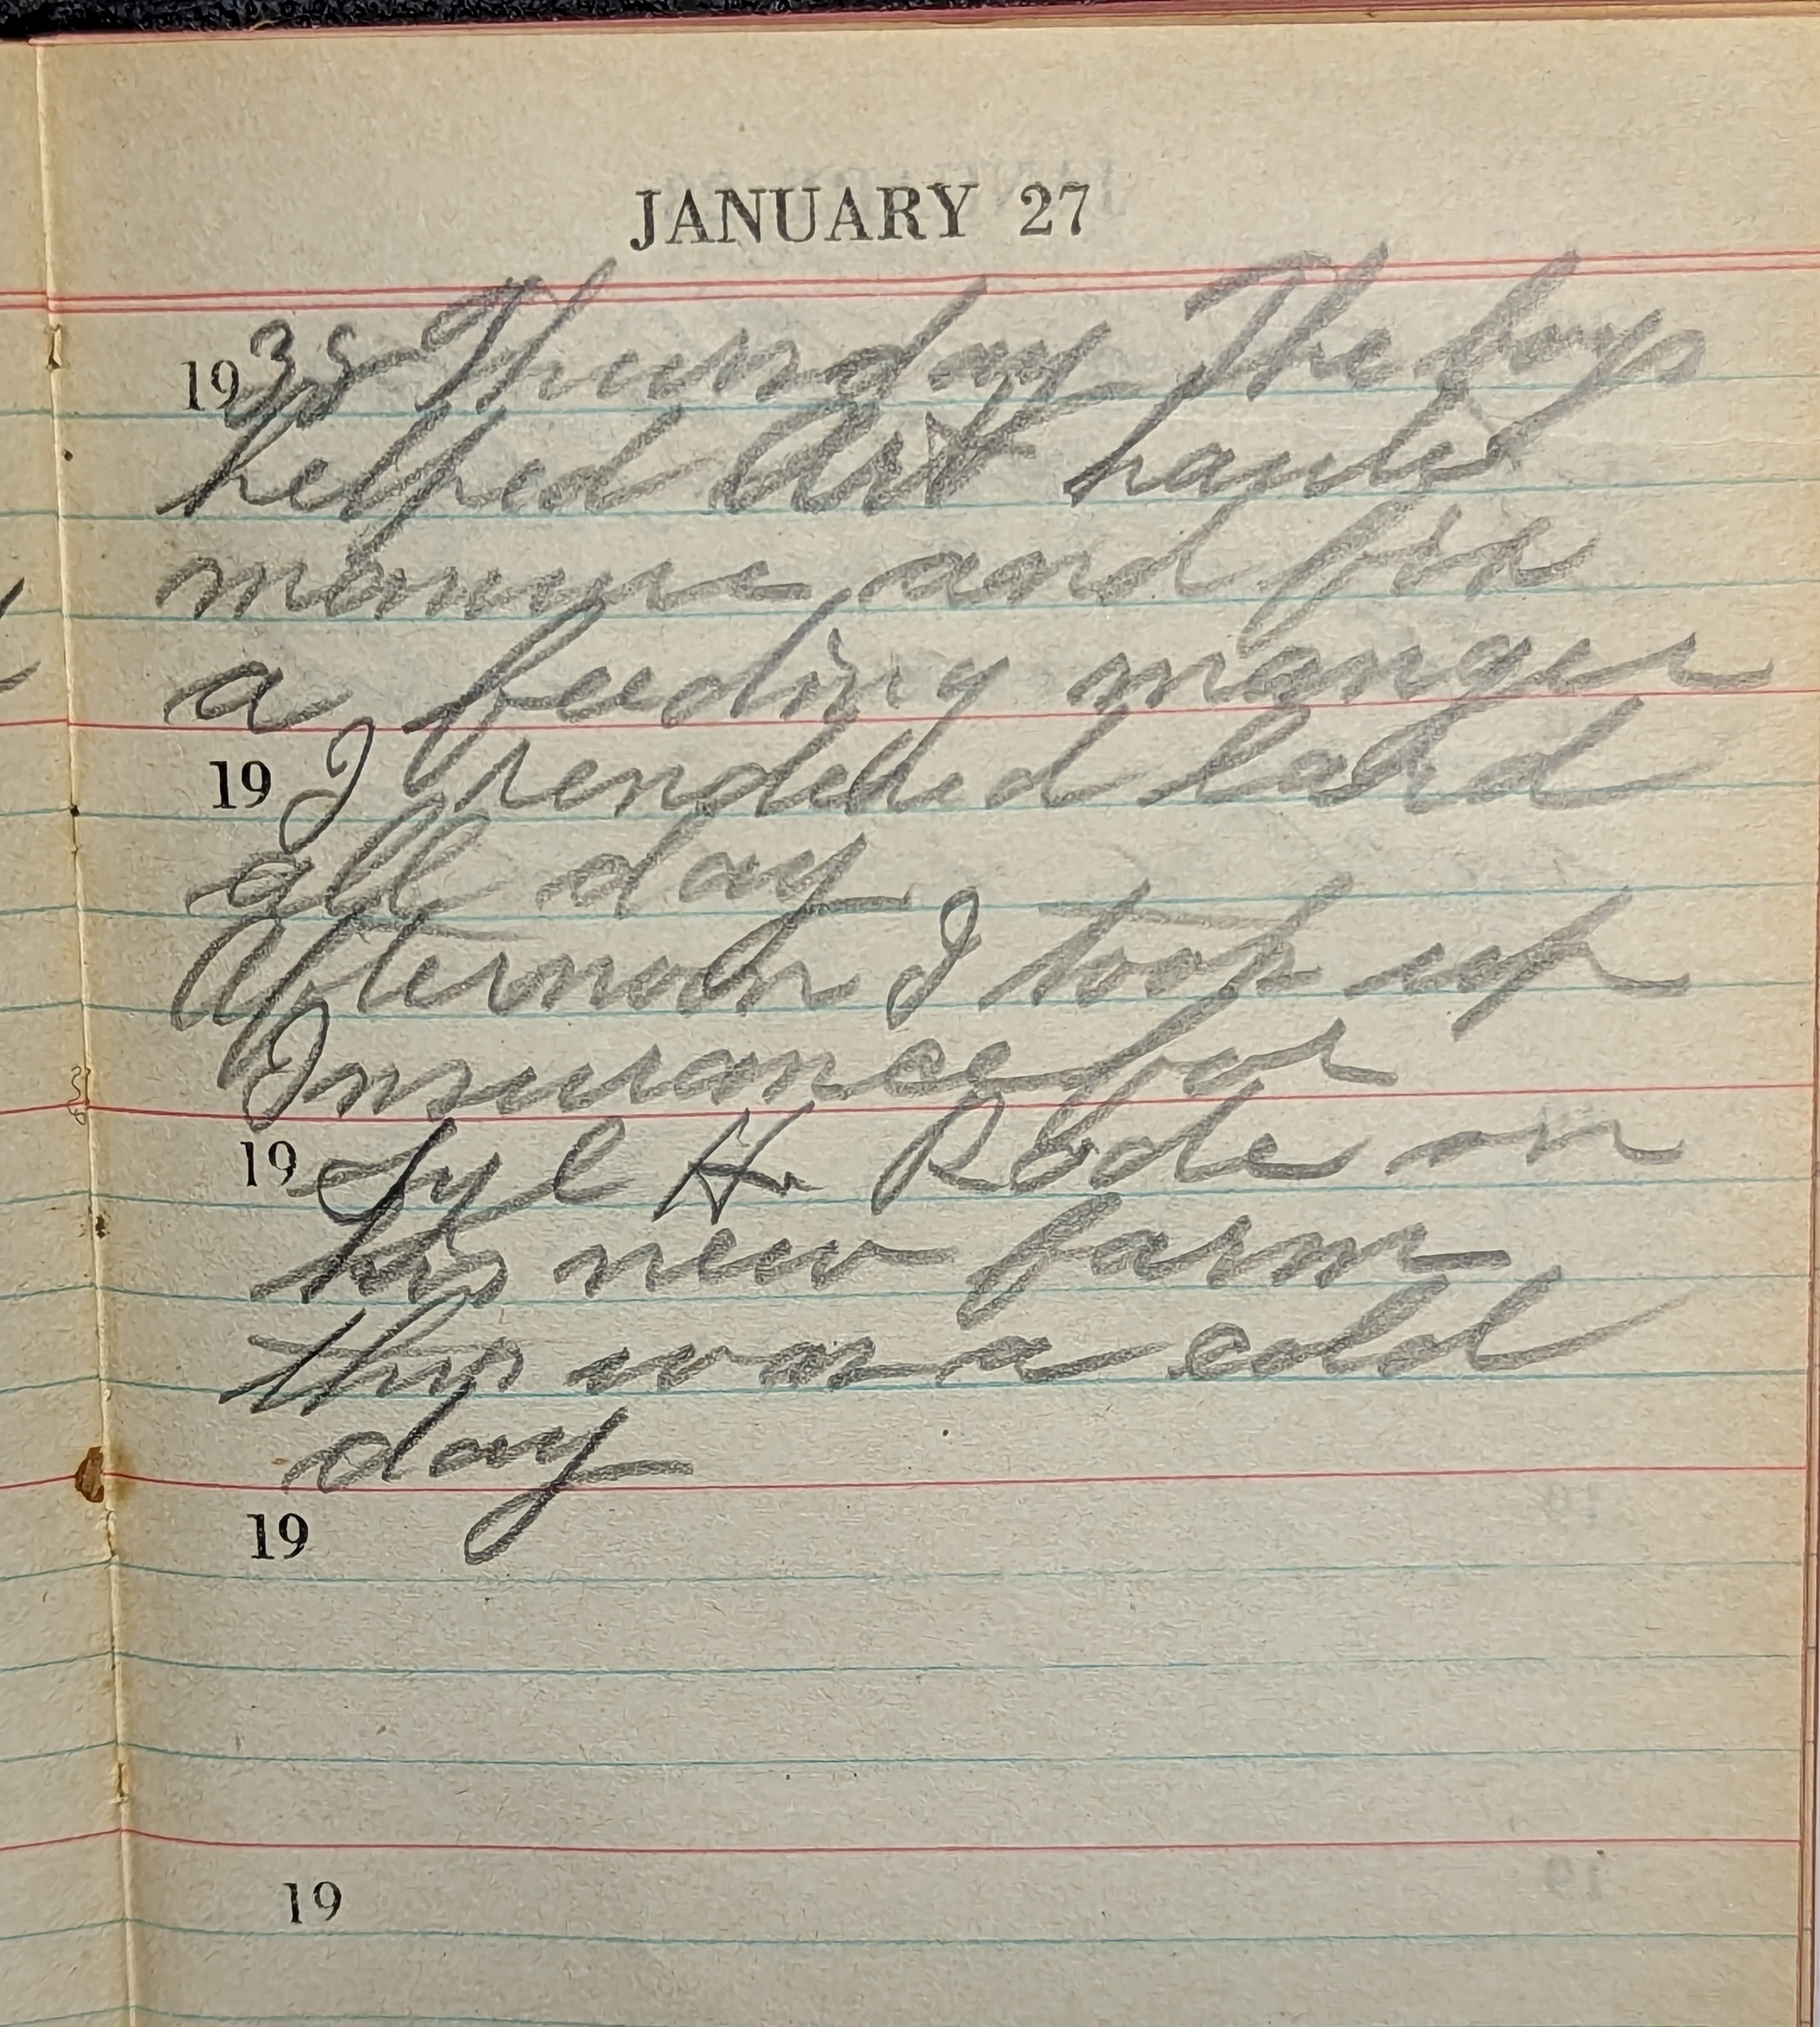 JANUARY 27
1938 Thursday The boys
helped Art hauled
manure and fix
a feeding manger
19 I rendered lard
all day
Afternoon I took up
Insurance for
19 Lyl H. Rode on
his new farm
this was a cold
day
19
19